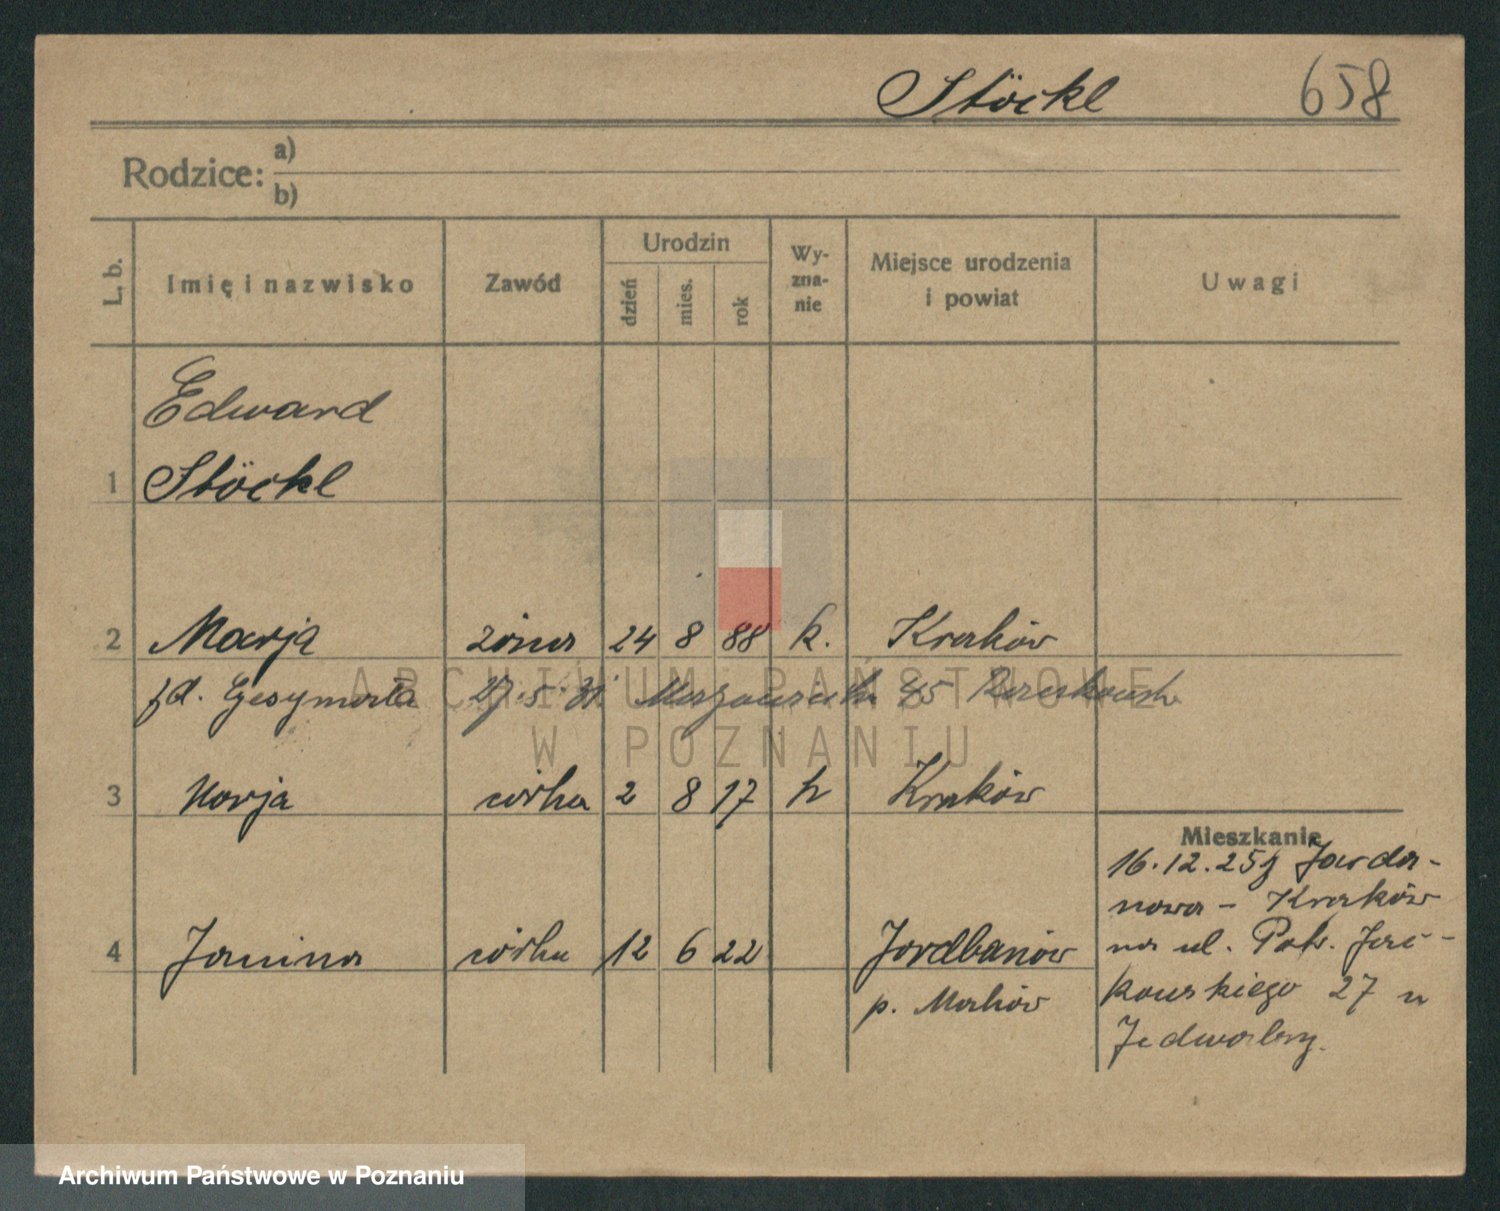 Stöckl 658
Rodzice: a)
b)
L. b. Imię i nazwisko Zawód Urodzin dzień mies. rok Wyznanie Miejsce urodzenia i powiat Uwagi
Edward
1 Stöckl
2 Marja żona 24 8 88 k. Kraków
27.5.31 45
3 Marja córka 2 8 17 k Kraków
Mieszkanie
16.12.25 z Jorda-
nowa - Kraków
4 Janina córka 12 6 22 Jordbanów na ul. Potr. Jać-
p. Maków kowskiego 27 u
Jedwabny.
ARCHIWUM PAŃSTWOWE
W POZNANIU
Archiwum Państwowe w Poznaniu